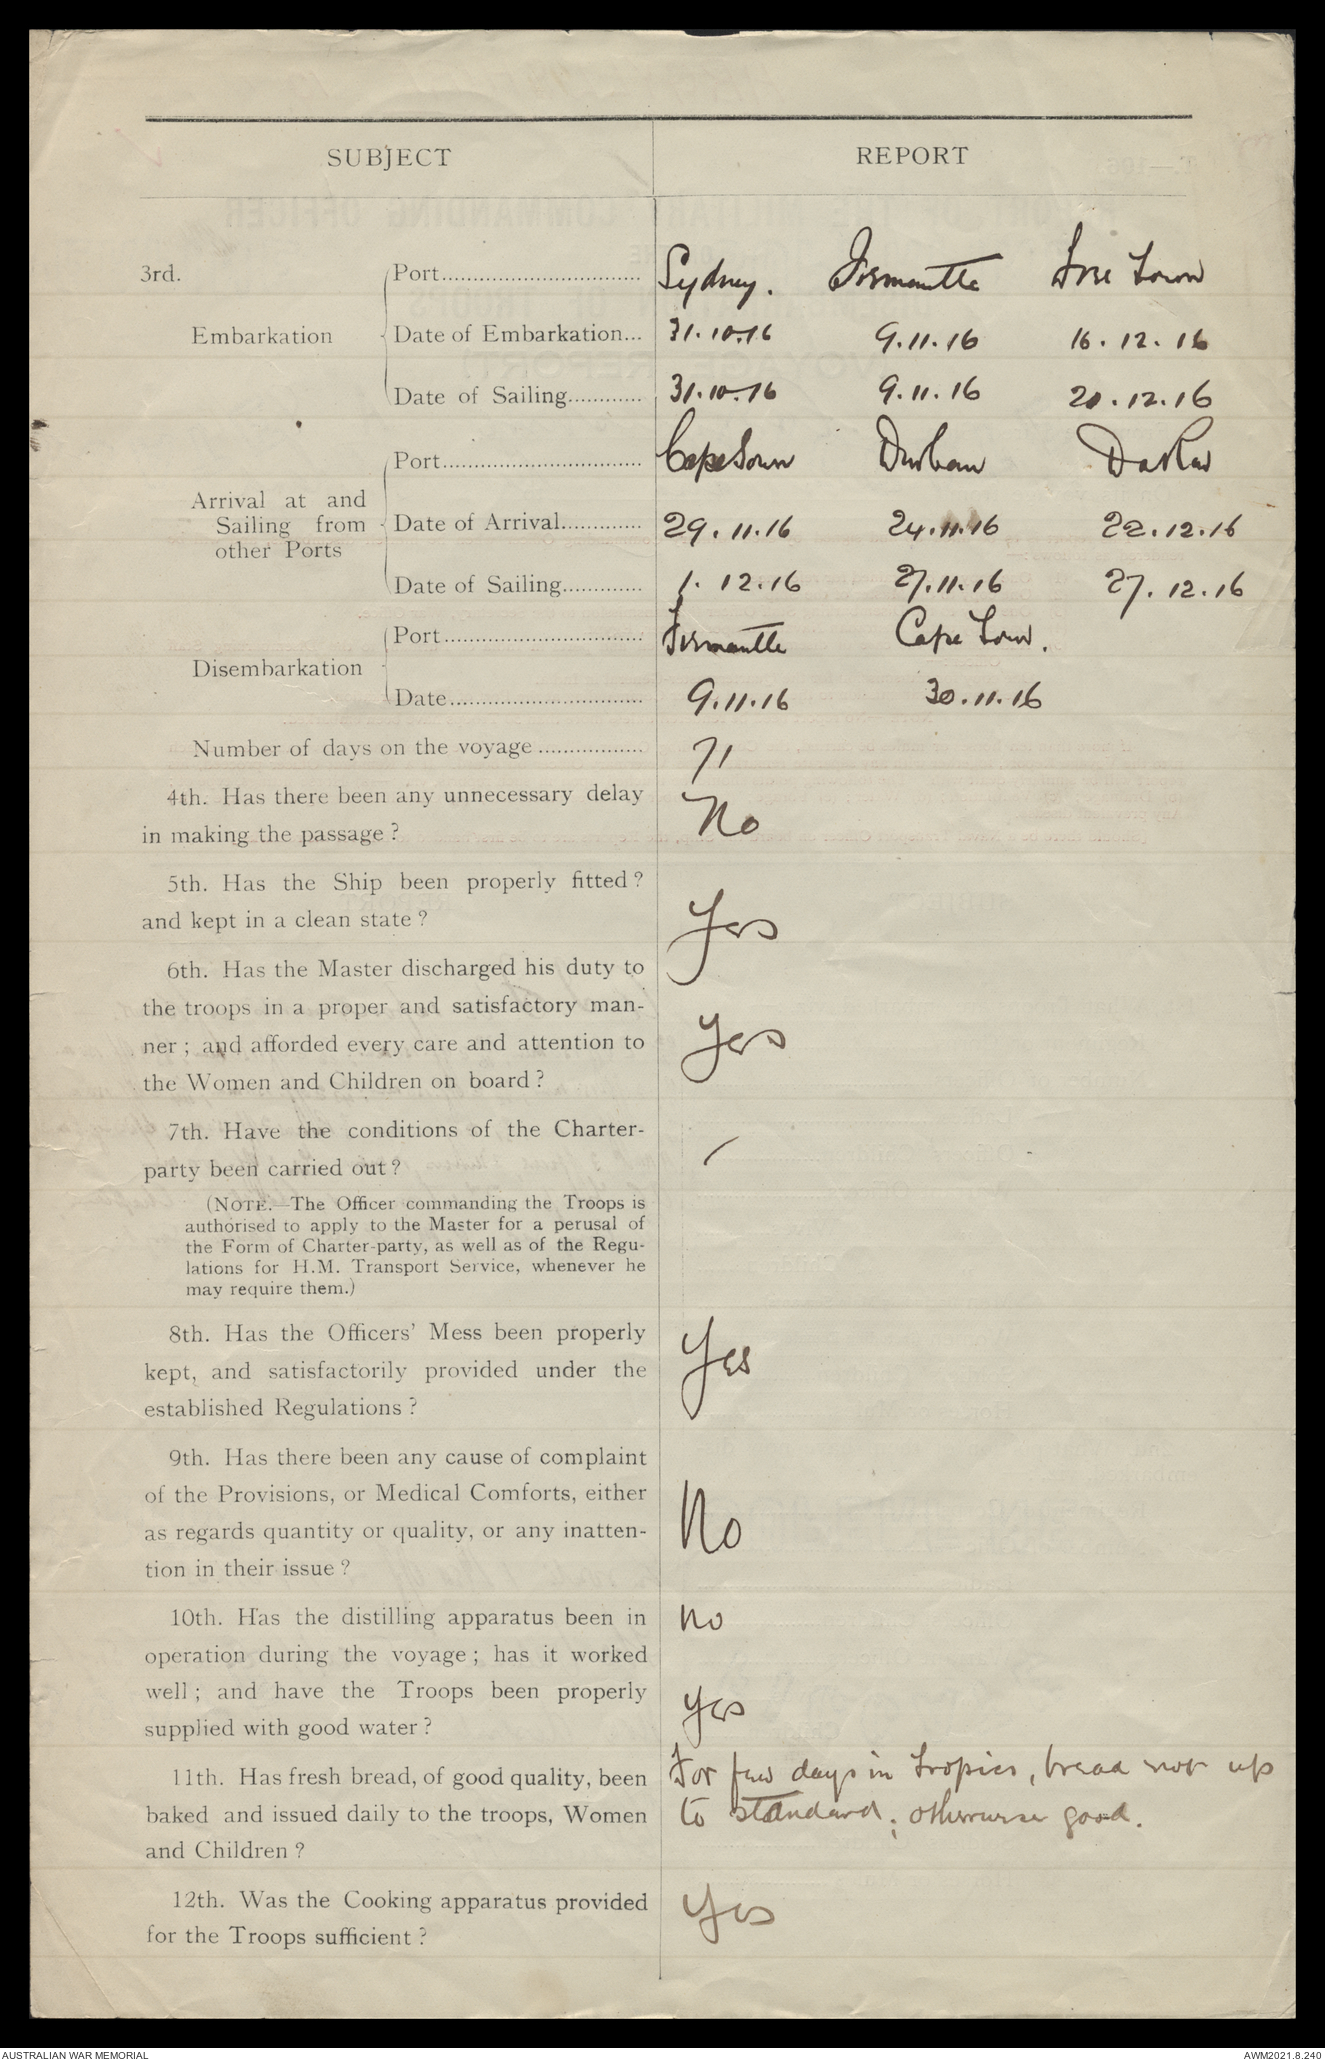 SUBJECT REPORT
3rd.
Port............................... Sydney. Fremantle Free Town
Embarkation Date of Embarkation... 31.10.16 9.11.16 16.12.16
Date of Sailing............ 31.10.16 9.11.16 20.12.16
Port............................... Cape Town Durban Dakar
Arrival at and
Sailing from Date of Arrival............. 29.11.16 24.11.16 22.12.16
other Ports
Date of Sailing............. 1.12.16 27.11.16 27.12.16
Port............................... Fremantle Cape Town.
Disembarkation
Date............................... 9.11.16 30.11.16
Number of days on the voyage ................. 71
4th. Has there been any unnecessary delay
in making the passage? No
5th. Has the Ship been properly fitted?
and kept in a clean state? Yes
6th. Has the Master discharged his duty to
the troops in a proper and satisfactory man-
ner; and afforded every care and attention to Yes
the Women and Children on board?
7th. Have the conditions of the Charter-
party been carried out? /
(NOTE.—The Officer commanding the Troops is
authorised to apply to the Master for a perusal of
the Form of Charter-party, as well as of the Regu-
lations for H.M. Transport Service, whenever he
may require them.)
8th. Has the Officers' Mess been properly
kept, and satisfactorily provided under the Yes
established Regulations?
9th. Has there been any cause of complaint
of the Provisions, or Medical Comforts, either
as regards quantity or quality, or any inatten- No
tion in their issue?
10th. Has the distilling apparatus been in No
operation during the voyage; has it worked
well; and have the Troops been properly Yes
supplied with good water?
11th. Has fresh bread, of good quality, been For few days in tropics, bread not up
baked and issued daily to the troops, Women to standard; otherwise good.
and Children?
12th. Was the Cooking apparatus provided Yes
for the Troops sufficient?
AUSTRALIAN WAR MEMORIAL AWM2021.8.240